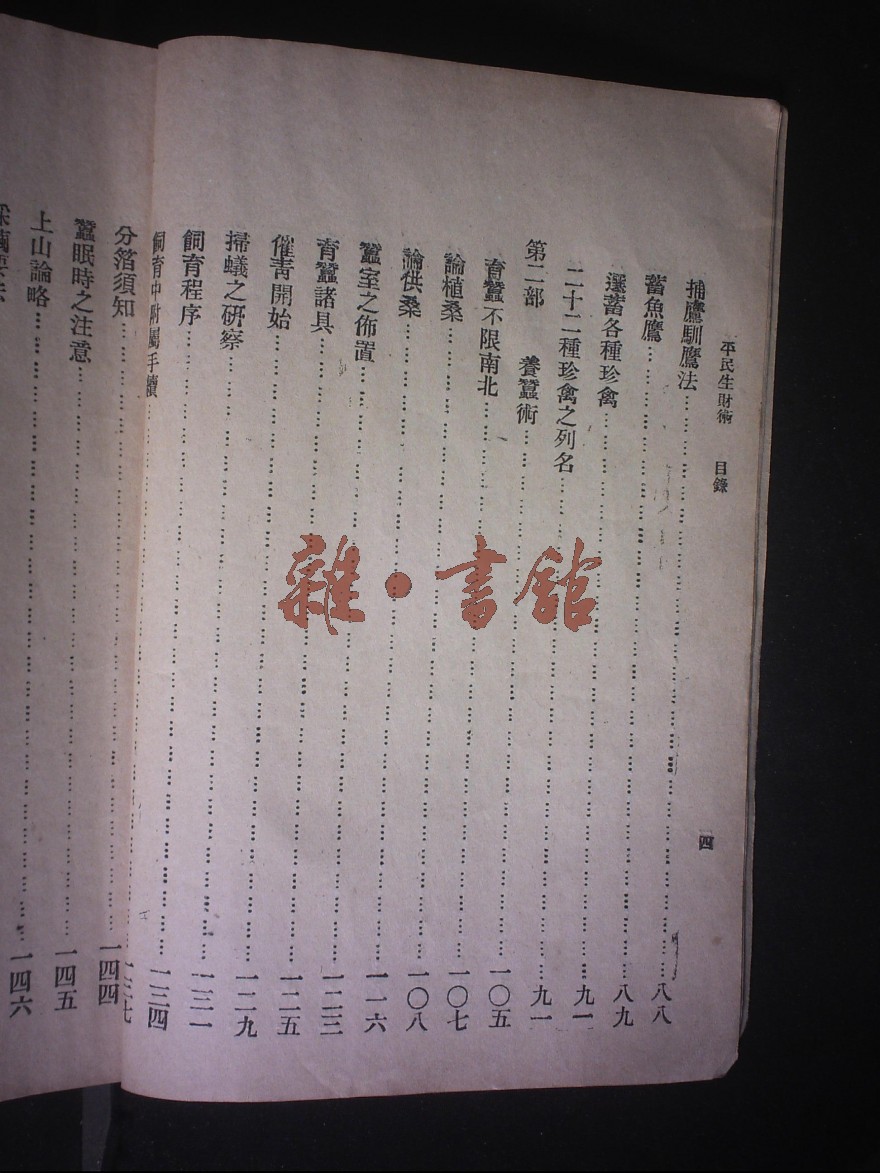 平民生財術　目錄　四
捕鷹馴鷹法……八八
蓄魚鷹……八九
選蓄各種珍禽……九一
二十二種珍禽之列名……九一
第二部　養蠶術……一〇五
育蠶不限南北……一〇七
論植桑……一〇八
論供桑……一一六
蠶室之佈置……一二三
育蠶諸具……一二五
催靑開始……一二九
掃蟻之硏察……一三一
飼育程序……一三四
飼育中附屬手續……一三七
分箔須知……一四四
蠶眠時之注意……一四五
上山論略……一四六
雜·書館